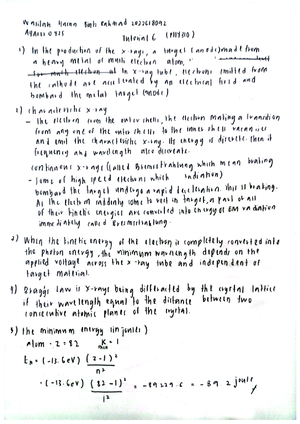 Wasilah Hanan Binti Rahmad 2022618092
AS2033 0335
Tutorial 6 (PHY310)
1) In the production of the x-rays, a target (anode) made from
a heavy metal of much electron atom,
In x-ray tube, electrons emitted from
the cathode are accelerated by an electrical field and
bombard the metal target (anode)
2) characteristic x-ray
- the electron from the outer shells, the electron making a transition
from any one of the outer shells to the inner shell vacancies
and emit the characteristic x-ray. Its energy is discrete. then it
frequency and wavelength also discrete.
continuous x-rays (called Bremsstrahlung which mean braking
radiation)
- some of high speed electrons which
bombard the target undergo a rapid deceleration. This is braking.
As the electron suddenly come to rest in target, a part or all
of their kinetic energies are converted into energy of EM radiation
immediately called Bremsstrahlung.
3) When the kinetic energy of the electron is completely converted into
the photon energy, the minimum wavelength depends on the
applied voltage across the x-ray tube and independent of
target material.
4) Braggs law is x-rays being diffracted by the crystal lattice
if their wavelength equal to the distance between two
consecutive atomic planes of the crystal.
5) The minimum energy (in joules)
atom - z = 82 K = 1
(-13.6eV) (z-1)²
n²
= (-13.6eV) (82-1)² = -89229.6 = -89.2 joule
1²